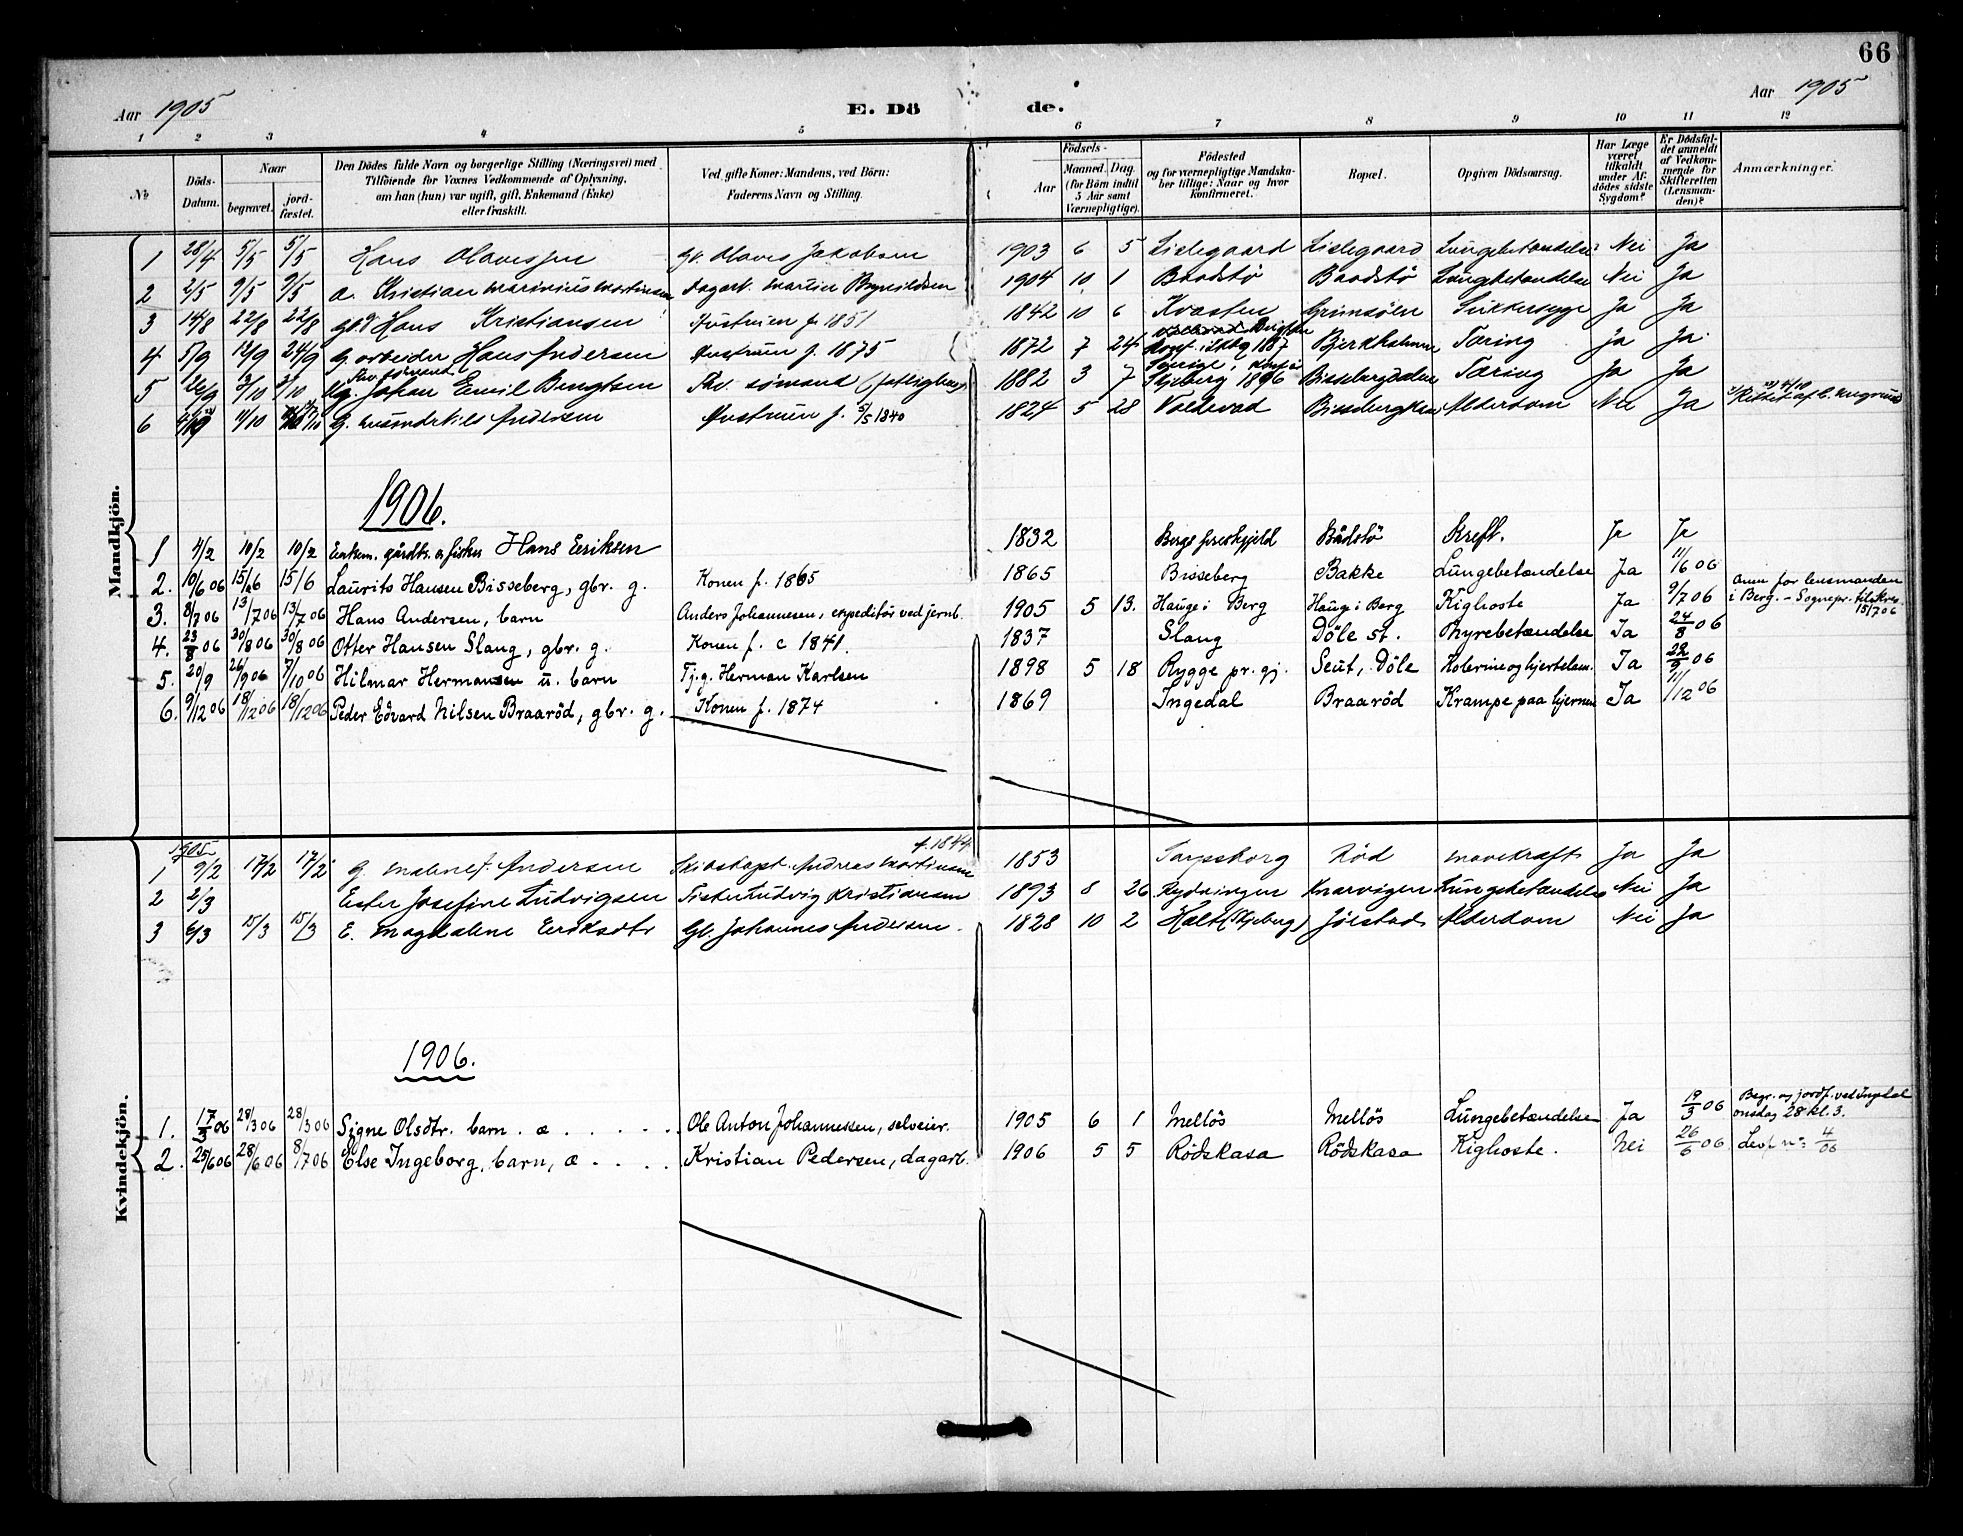 66
Aar 1905
E. Dö de.
Aar 1905
1 2 3 4 5 6 7 8 9 10 11 12
No
Döds-Datum.
Naar begravet. jordfæstet.
Den Dödes fulde Navn og borgerlige Stilling (Næringsvei) med Tilföiende for Voxnes Vedkommende af Oplysning, om han (hun) var ugift, gift, Enkemand (Enke) eller fraskilt.
Ved gifte Koner: Mandens, ved Börn: Faderens Navn og Stilling.
Födsels- Aar Maaned. Dag. (for Börn indtil 5 Aar samt Værnepligtige).
Födested og for værnepligtige Mandskaber tillige: Naar og hvor konfirmeret.
Bopæl.
Opgiven Dödsaarsag.
Har Læge været tilkaldt under Afdödes sidste Sygdom?
Er Dödsfaldet anmeldt af Vedkommende for Skifteretten (Lensmanden)?
Anmærkninger.
Mandkjön.
1 28/4 5/5 5/5 Hans Olavessen gb. Olaves Jakobsen 1903 6 5 Lislegaard Lislegaard Lungebetændelse Nei Ja
2 2/5 9/5 9/5 a. Kristian Marinius Martinsen dagarb. Martin Brynildsen 1904 10 1 Baadstö Baadstö Lungebetændelse Nei Ja
3 14/8 22/8 22/8 Hans Kristiansen Hustruen f. 1851 1842 10 6 Kvasten Grimsöen Sukkersyge Ja Ja
4 5/9 12/9 24/9 g. arbeider Hans Andersen Hustruen f. 1875 1872 7 24 1887 Bjerkholmen Tæring Ja Ja
5 26/9 3/10 3/10 Ug. Johan Emil Bengtsen Thv. sömand (fattigbarn) 1882 3 7 Sverige, Skjeberg 1896 Bissebergdalen Tæring Ja Ja
6 11/10 g. husmd. Nils Andersen Hustruen f. 5/5 1840 1824 5 28 Voldevad Alderdom Nei Ja
1906.
1 4/2 10/2 10/2 Enkem. gårdbr. og fisker Hans Eriksen 1832 Bergs prestegjeld Bådstö Kreft. Ja Ja
2. 10/6 06 15/6 15/6 Laurits Hansen Bisseberg, gbr. g. Konen f. 1865 1865 Bisseberg Bakke Lungebetændelse Ja 11/6 06
3. 8/7 06 13/7 06 13/7 06 Hans Andersen, barn Anders Johannessen, expeditör ved jernb. 1905 5 13. Hauge i Berg Hauge i Berg Kighoste Ja 9/7 06 anm for lensmanden i Berg. – Sognepr. tilskrev. 15/7 06
4. 23/8 06 30/8 06 30/8 06 Otter Hansen Slang, gbr. g. Konen f. c 1841. 1837 Slang Döle st. Nyrebetændelse Ja 24/8 06
5. 20/9 26/9 06 7/10 06 Hilmar Hermansen u. barn Tj. g. Herman Karlsen 1898 5 18 Rygge pr. gj. Seut, Döle Kolerine og hjertelam. Ja 22/9 06
6. 9/12 06 18/12 06 18/12 06 Peder Edvard Nilsen Braaröd, gbr. g. Konen f. 1874 1869 Ingedal Braaröd Krampe paa hjernen Ja 11/12 06
Kvindekjön.
1905
f. 1844
1 9/2 17/2 17/2 g. Andersen Skibskapt. Andreas Martinsen 1853 Sarpsborg Röd mavekræft Ja Ja
2 2/3 Ester Josefine Ludvigsen Fisker Ludvig Kristiansen 1893 8 26 Rydningen Knarvigen Lungebetændelse Nei Ja
3 6/3 15/3 15/3 E. Magdalene Eriksdtr Gb. Johannes Andersen. 1828 10 2 Holt (Skjeberg) Jölstad Alderdom Nei Ja
1906.
1. 17/3 06 28/3 06 28/3 06 Signe Olsdtr. barn. æ . . . . . Ole Anton Johannessen, selveier. 1905 6 1 Mellös Mellös Lungebetændelse Ja 19/3 06 Begr. og jordf. ved Ingedal onsdag 28 kl. 3.
2. 25/6 06 28/6 06 8/7 06 Else Ingeborg, barn, æ . . . . Kristian Pedersen, dagarb. 1906 5 5 Rödskasa Rödskasa Kighoste. Nei 26/6 06 4/06